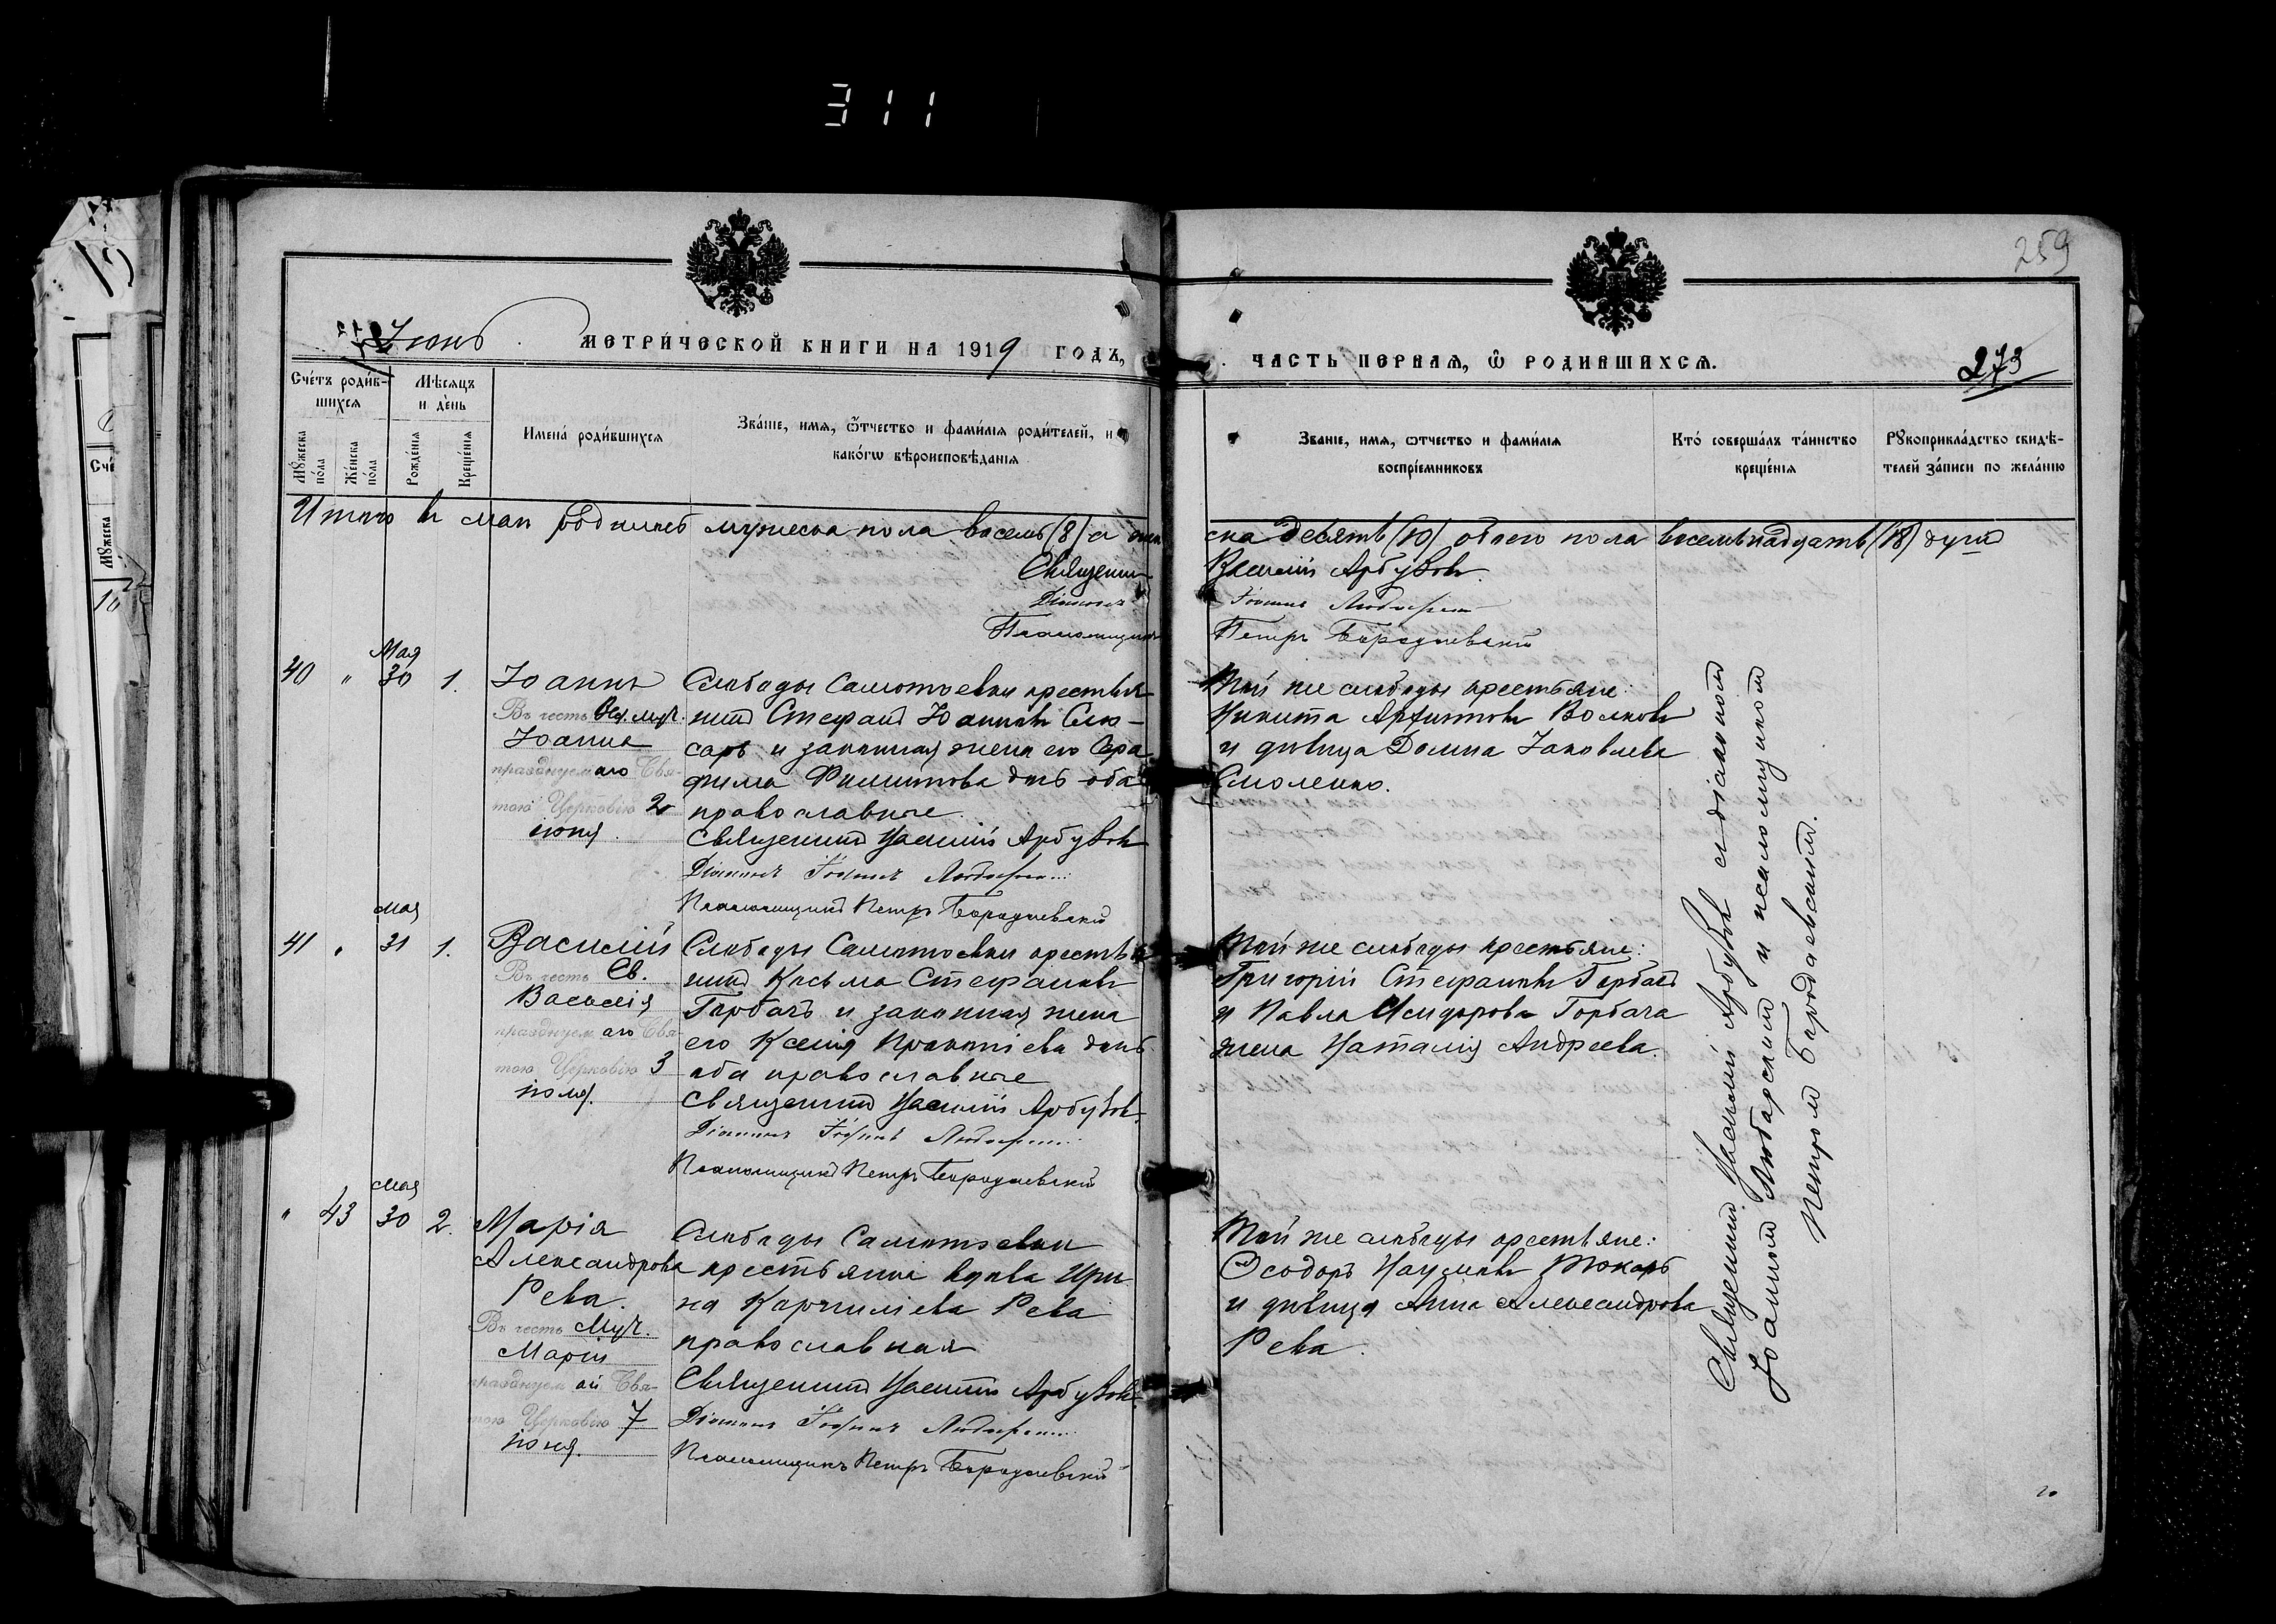 311
259
Іюнь
МЕТРИЧЕСКОЙ КНИГИ НА 1919 ГОДЪ,
ЧАСТЬ ПЕРВАЯ, Ѿ РОДИВШИХСЯ.
273
Счетъ родившихся
Мужеска пола
Женска пола
Мѣсяцъ и день
Рожденія
Крещенія
Имена родившихся
Званіе, имя, ѿтчество и фамилія родителей, и
какогω вѣроисповѣданія
Званіе, имя, ωтчество и фамилія
воспріемниковъ
Кто совершалъ таинство
крещенія
Рукоприкладство свидѣ-
телей записи по желанію
Итого въ маѣ родилось мужеска пола восемь (8) а жен
ска десять (10) обоего пола восемьнадцать (18) душъ
Священникъ Василій Арбузовъ
Діаконъ Іоаннъ Любарскій
Псаломщикъ Петръ Бородаевскій
40 " Мая 30 1.
Іоаннъ
Въ честь Вел. муч.
Іоанна
празднуемаго Свя-
тою Церковію 2
іюня.
Слободы Самотоевки крестья
нинъ Стефанъ Іоанновъ Слю-
сарь и законная жена его Сера
фима Филиппова дочь оба
православные.
Священникъ Василій Арбузовъ
Діаконъ Іоаннъ Любарскій
Псаломщикъ Петръ Бородаевскій
Той же слободы крестьяне:
Никита Архиповъ Волковъ
и дѣвица Домна Іаковлева
Смоленко.
41 " Мая 31 1.
Василій
Въ честь Св.
Василія
празднуемаго Свя-
тою Церковію 3
іюля.
Слободы Самотоевки крестья
нинъ Косьма Стефановъ
Горбачъ и законная жена
его Ксенія Прокопіева дочь
оба православные
Священникъ Василій Арбузовъ
Діаконъ Іоаннъ Любарскій
Псаломщикъ Петръ Бородаевскій
Той же слободы крестьяне:
Григорій Стефановъ Горбачъ
и Павла Исидорова Горбача
жена Наталія Андреева.
" 43 Мая 30 2.
Марія
Александрова
Рева.
Въ честь Муч.
Маріи
празднуемой Свя-
тою Церковію 7
іюня.
Слободы Самотоевки
крестьянка вдова Ири
на Корниліева Рева
православная
Священникъ Василій Арбузовъ
Діаконъ Іоаннъ Любарскій
Псаломщикъ Петръ Бородаевскій
Той же слободы крестьяне:
Ѳеодоръ Наумовъ Токарь
и дѣвица Анна Александрова
Рева.
Священникъ Василій Арбузовъ съ діакономъ
Іоанномъ Любарскимъ и псаломщикомъ
Петромъ Бородаевскимъ.